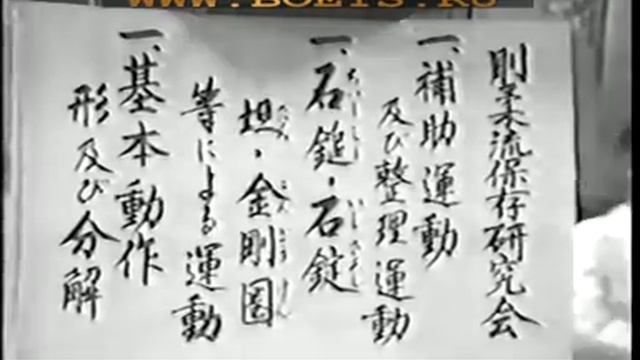 WWW.BOETS.RU
剛柔流保存研究会
一、補助運動
及び整理運動
一、石鎚・石錠
坦・金剛圏
等による運動
一、基本動作
形及び分解